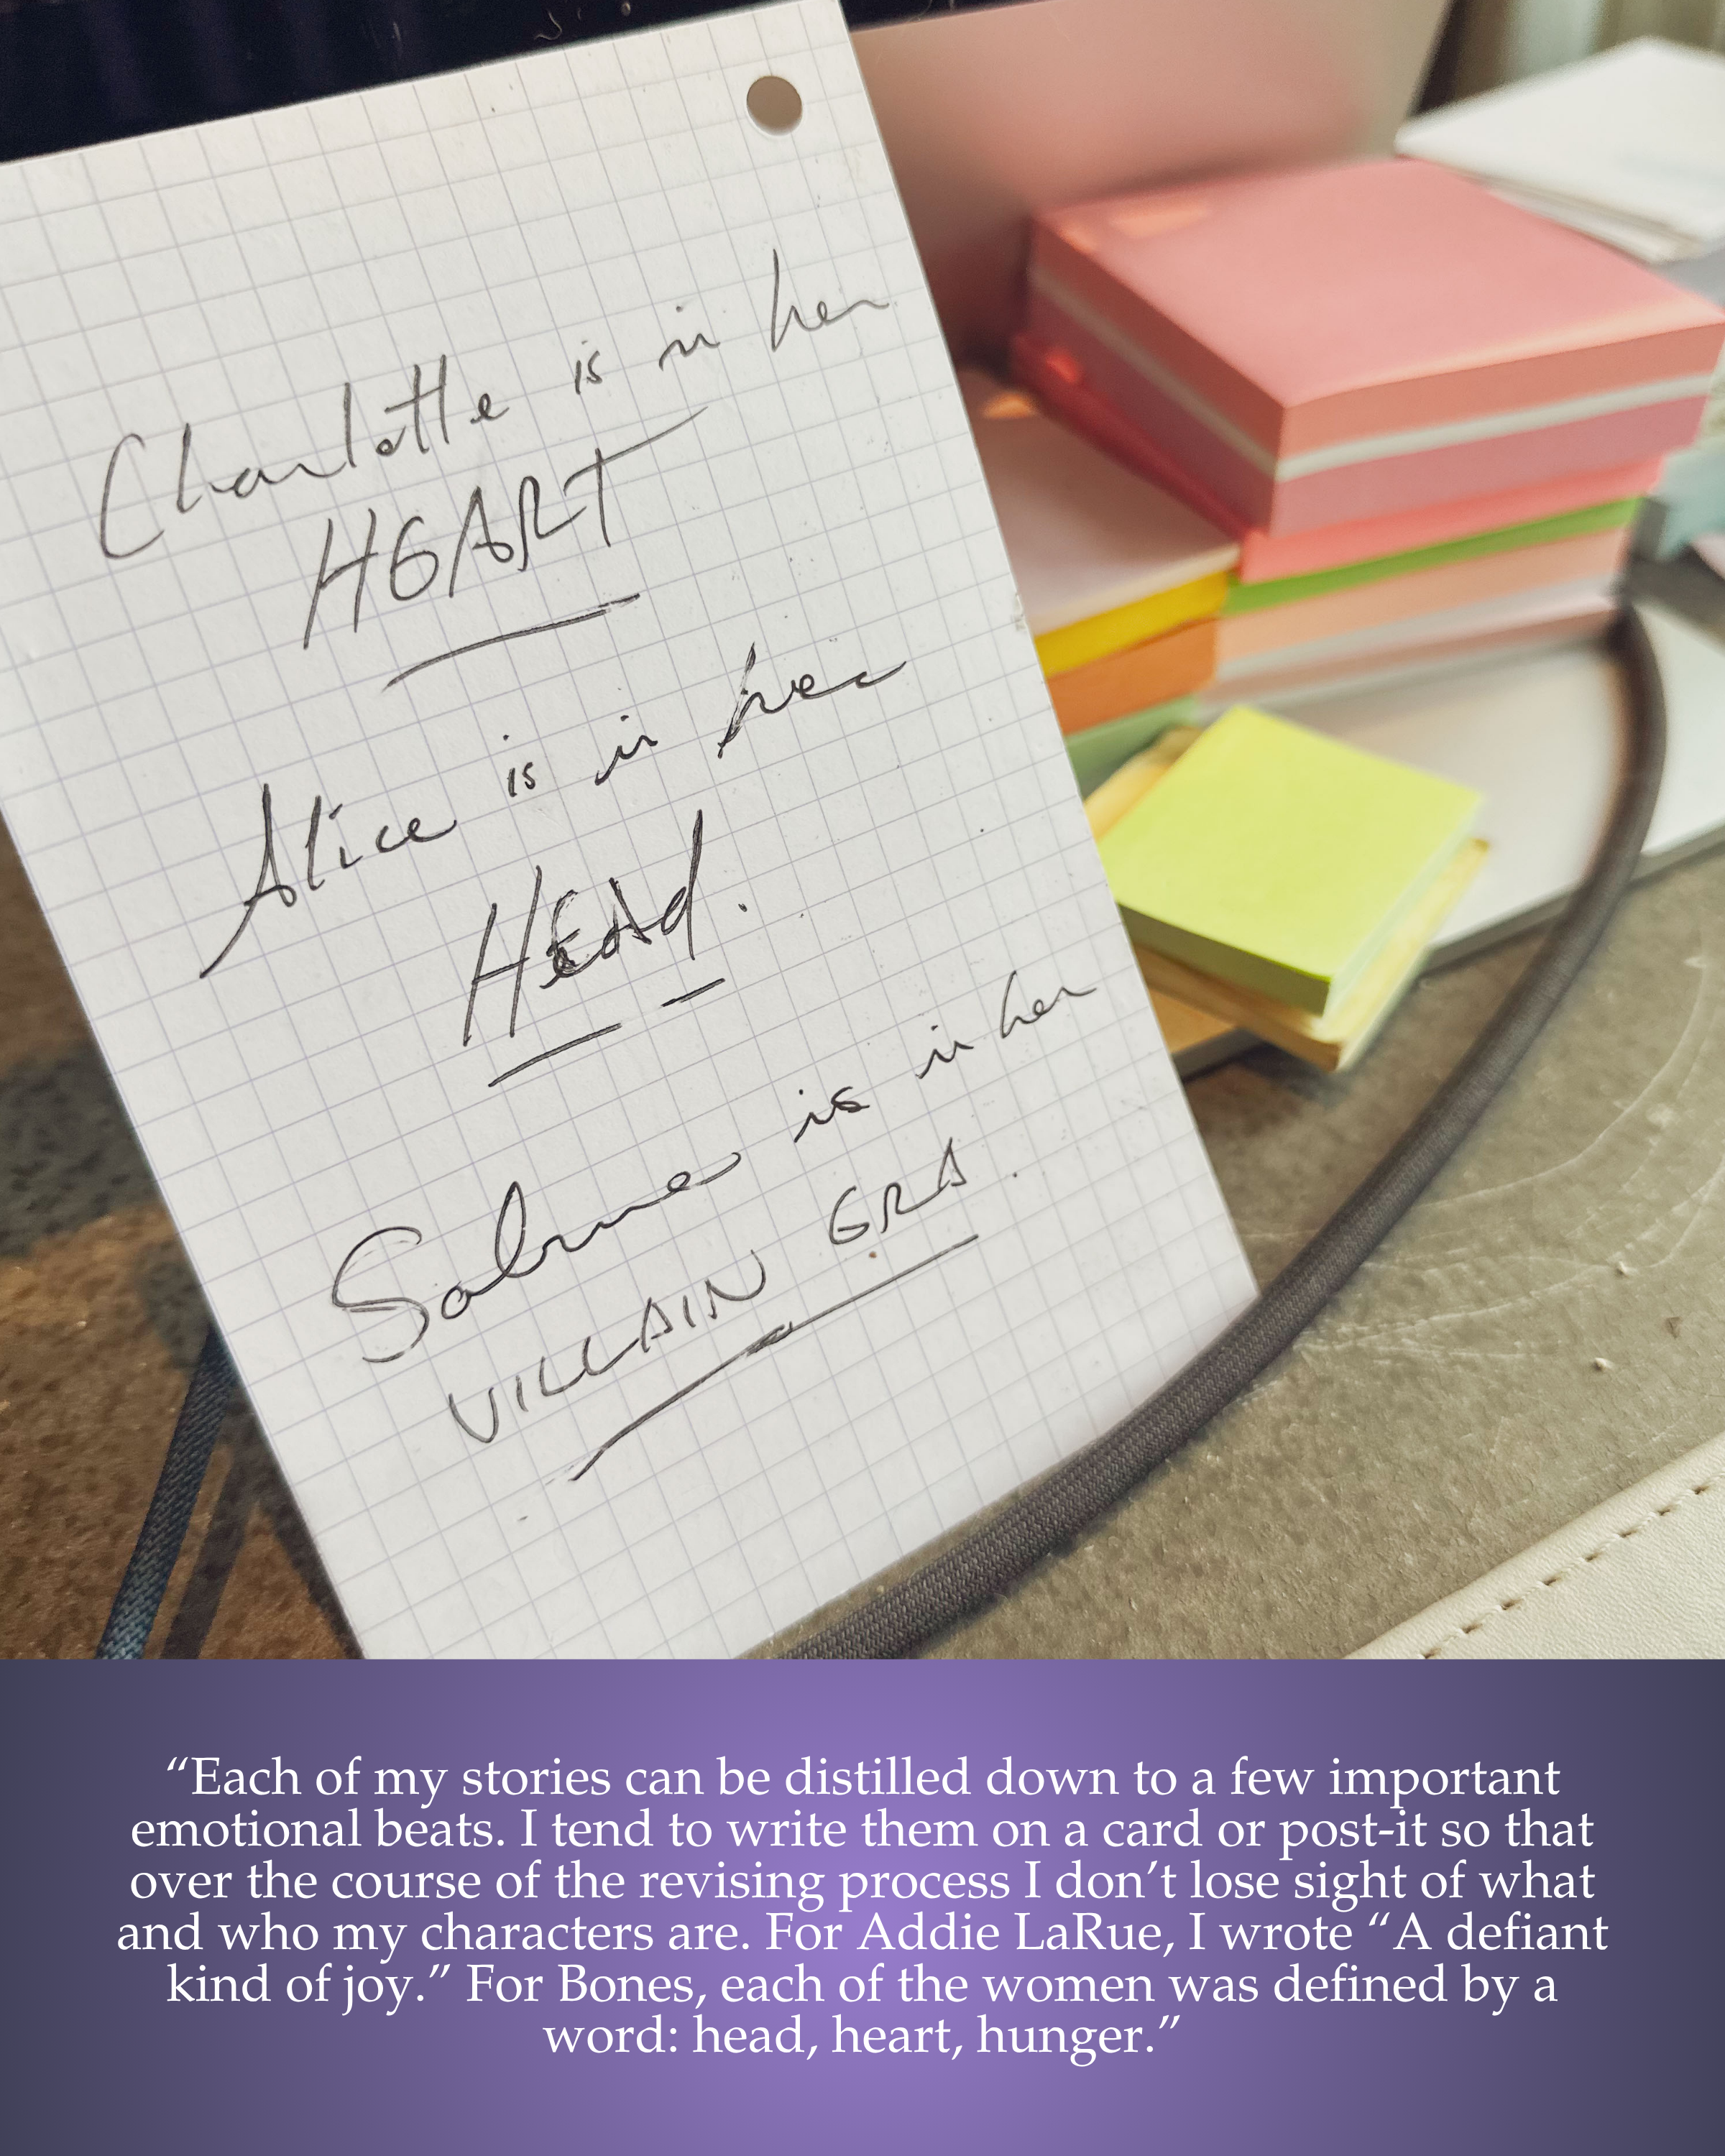 Charlotte is in her
HEART
Alice is in her
HEAd.
Sabine is in her
VILLAIN ERA.
“Each of my stories can be distilled down to a few important
emotional beats. I tend to write them on a card or post-it so that
over the course of the revising process I don’t lose sight of what
and who my characters are. For Addie LaRue, I wrote “A defiant
kind of joy.” For Bones, each of the women was defined by a
word: head, heart, hunger.”